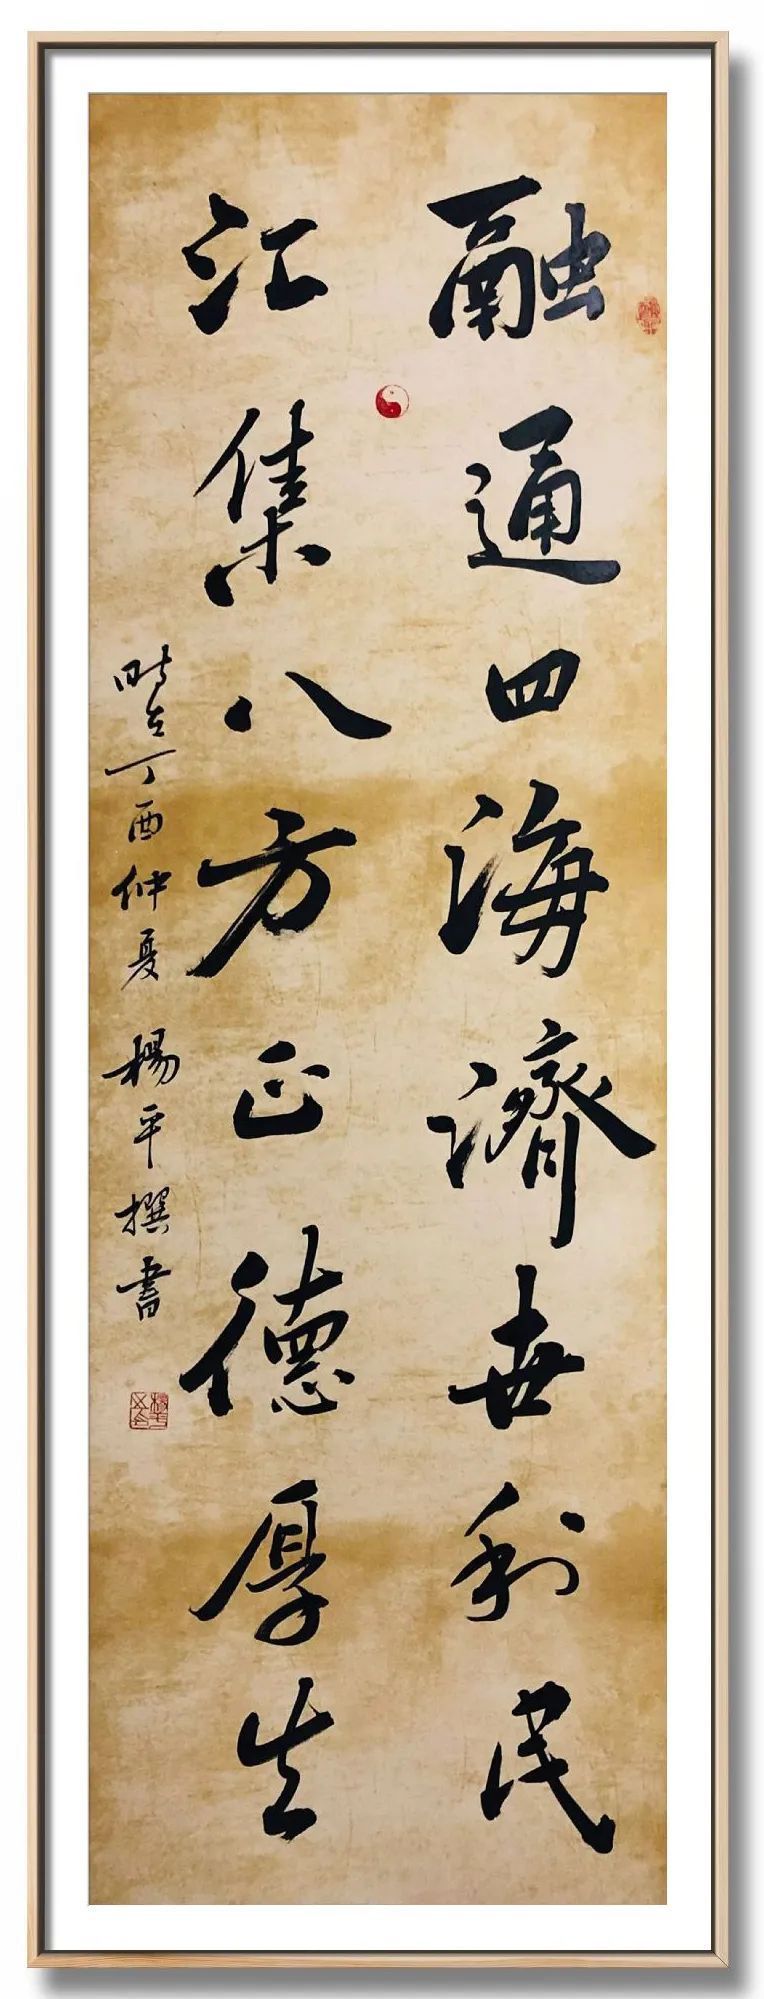 融通四海濟世利民
江集八方正德厚生
時在丁酉仲夏 楊平撰書